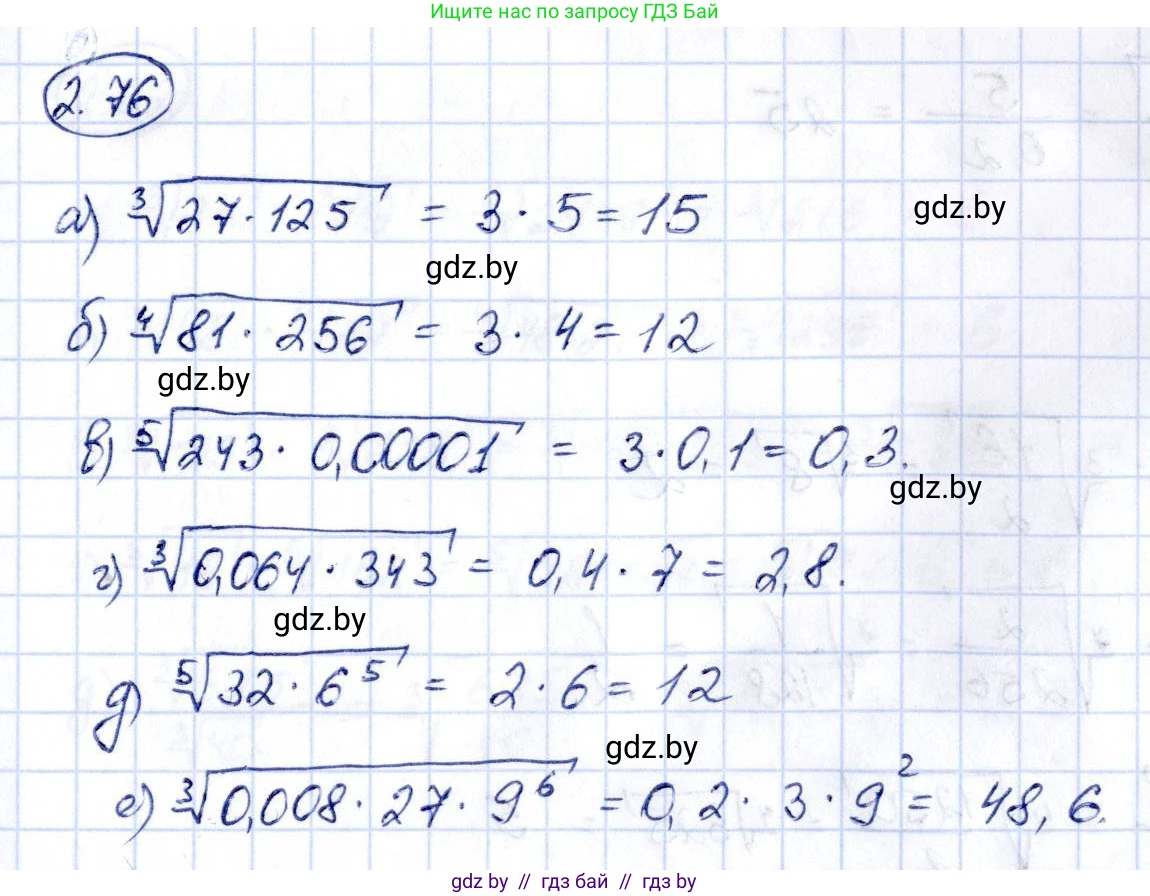 Ищите нас по запросу ГДЗ Бай
2.76
а) ∛27·125 = 3·5=15
gdz.by
gdz.by
б) ∜81·256 = 3·4=12
gdz.by
в) ⁵√243·0,00001 = 3·0,1=0,3.
gdz.by
г) ∛0,064·343 = 0,4·7=2,8.
gdz.by
д) ⁵√32·6⁵ = 2·6=12
gdz.by
е) ∛0,008·27·9⁶ =0,2·3·9²= 48,6.
gdz by // гдз бай // гдз by